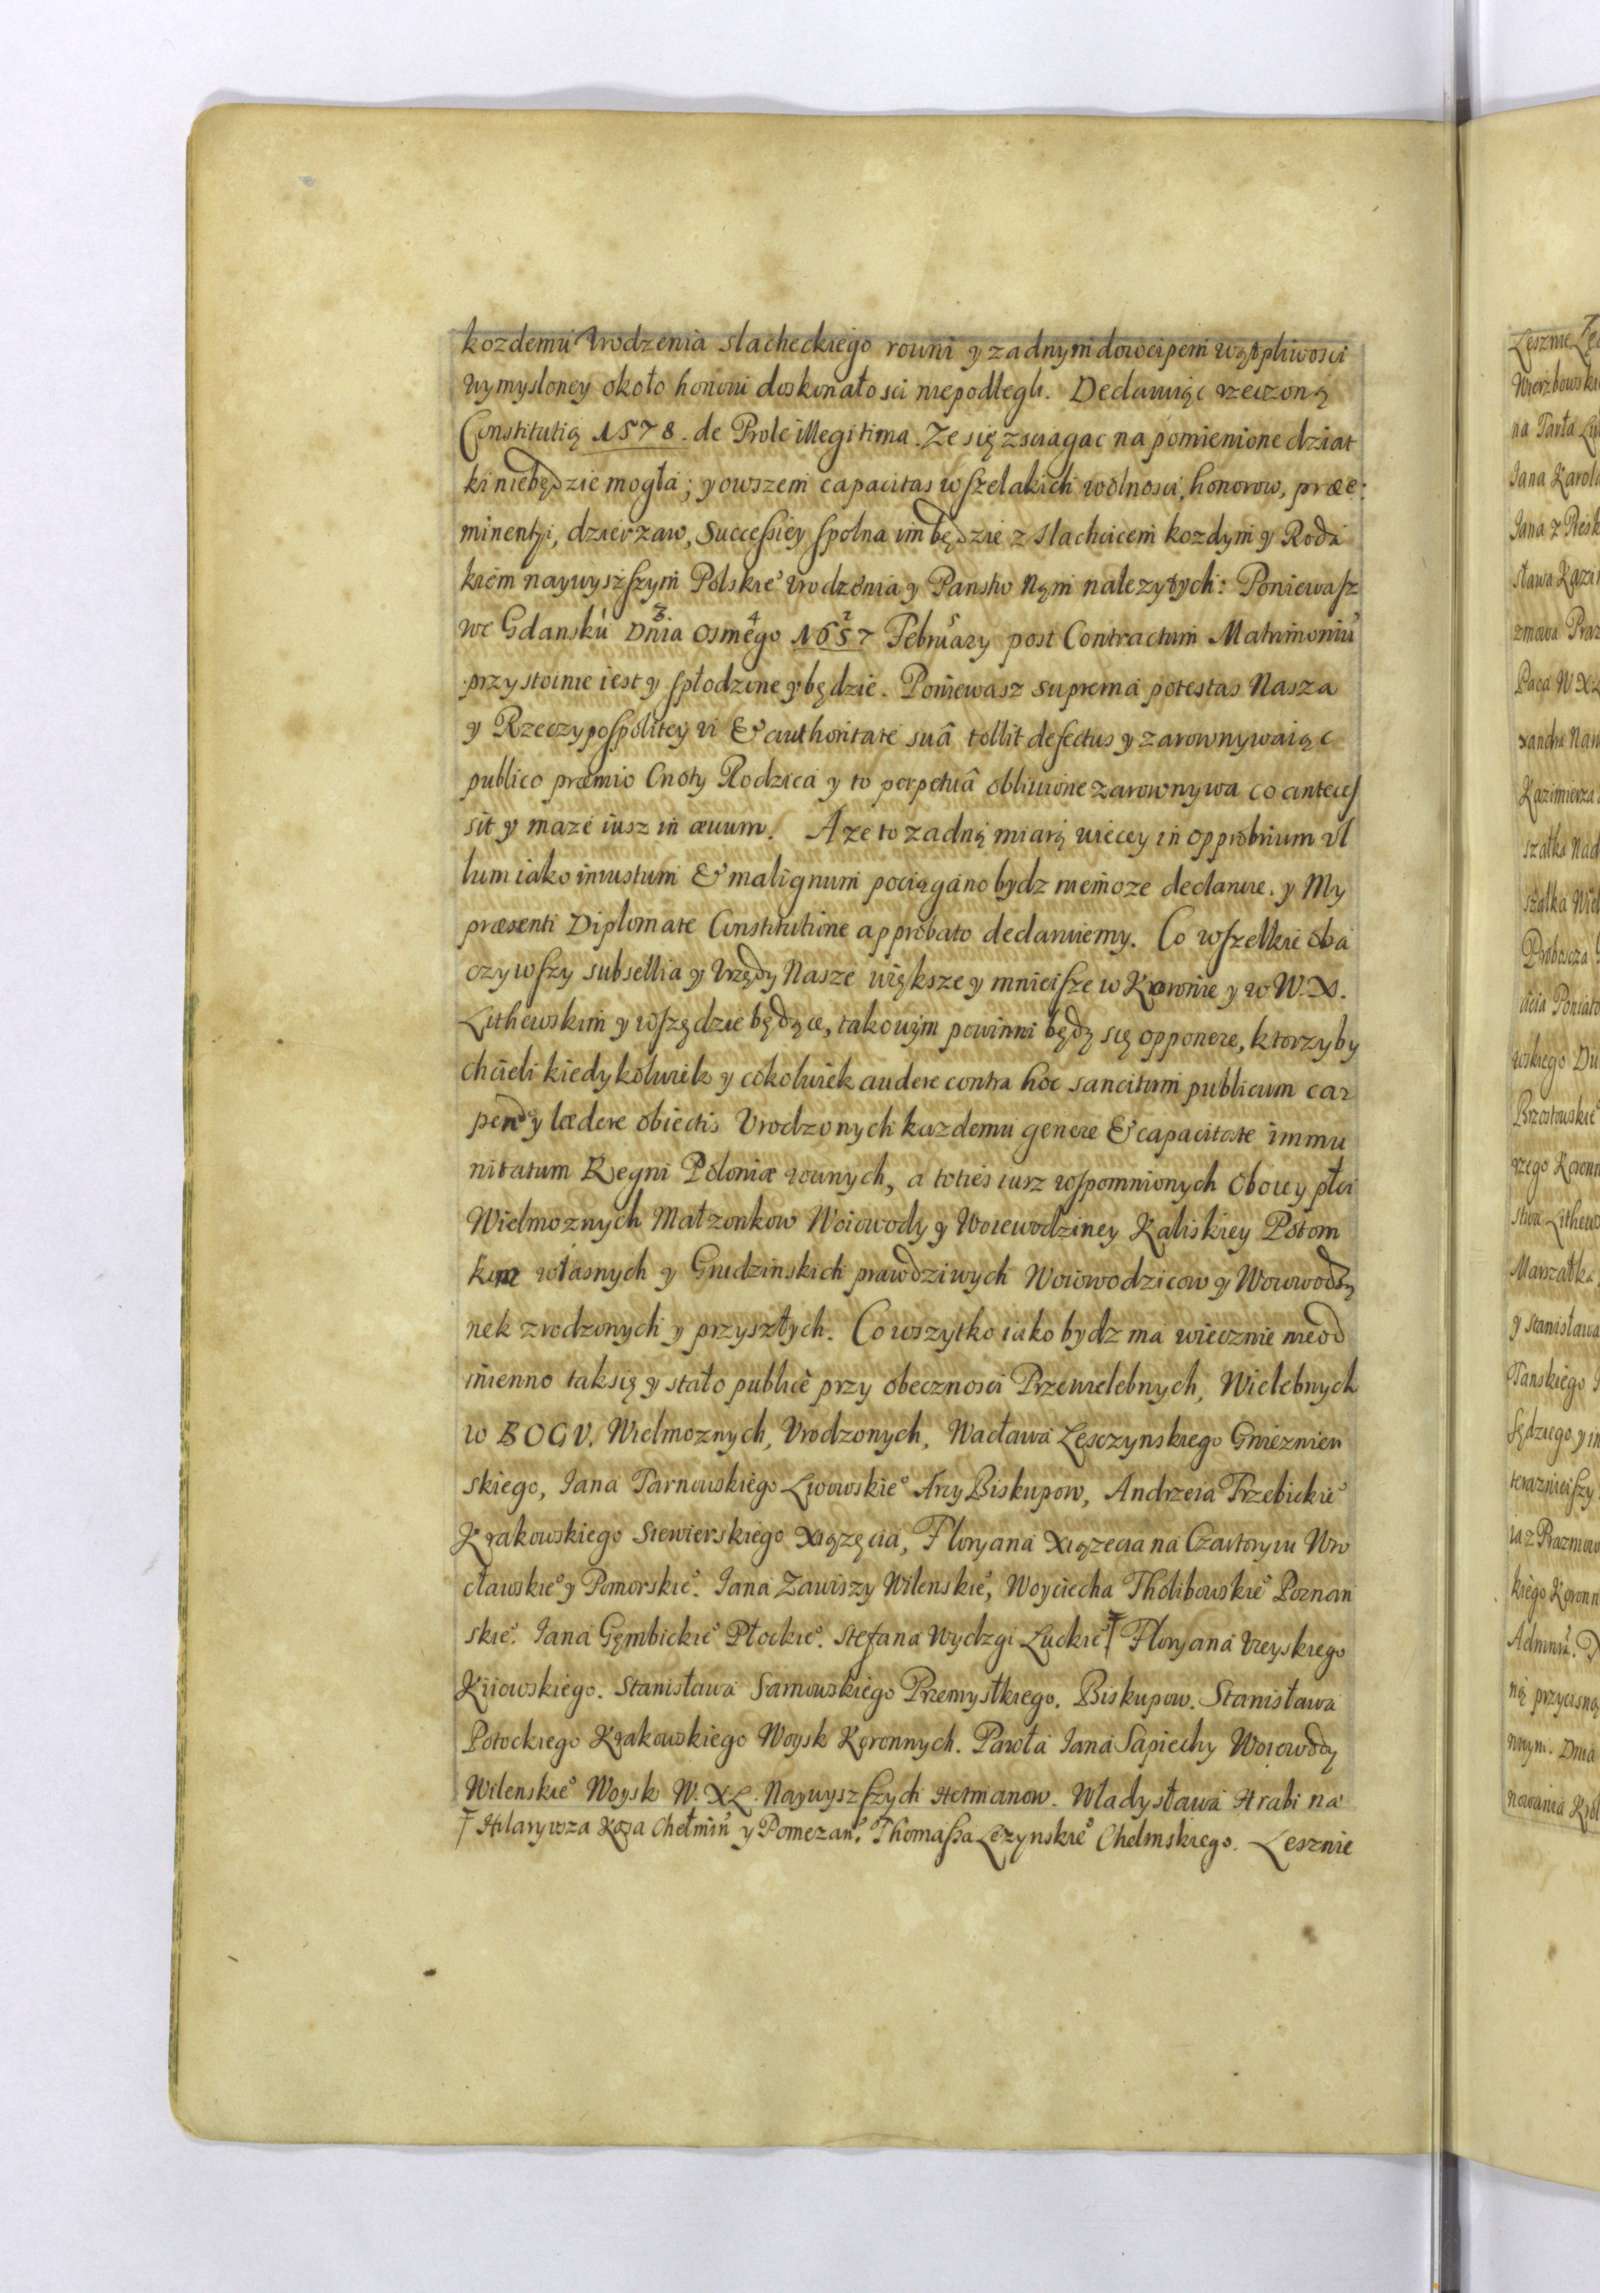 kozdemu Vrodzenia slacheckiego rowni y zadnym dowcipem wątpliwosci
wymysloney około honoru doskonałosci niepodlegli. Declaruiąc rzeczoną
Constitutią 1578. de Prole illegitima. Ze się zsciagac na pomienione dziat
ki niebędzie mogła; y owszem capacitas wszelakich wolnosci, honorow, præe:
minentyi, dzierzaw, Successiey spolna im będzie z slachcicem kozdym y Roda
kiem naywyszszym Polskieo Vrodzenia y Panstw Nąm nalezytych: Poniewasz
we Gdansku Dnia osmego 1657 February post Contractum Matrimoniu
3 4 2 5
przystoinie iest y spłodzone y będzie. Poniewasz suprema potestas Nasza
y Rzeczypospolitey vi & authoritate suâ tollit defectus y zarownywaiąc
publico præmio Cnoty Rodzica y to perpetuâ obliuione zarownywa co anteces
sit y maze iusz in æuum. A ze to zadną miarą wiecey in opprobrium vl
lum iako iniustum & malignum pociągano bydz niemoze declarue. y My
præsenti Diplomate Constitutione approbato declaruiemy. Co wszelkie oba
czywszy subsellia y Vrzędy Nasze większe y mnieisze w Koronie y w W. X.
Lithewskim y wszędzie będące, takowym powinni będą się opponere, ktorzyby
chcieli kiedykolwiek y cokolwiek audere contra hoc sancitum publicum car
pere y lædere obiectis Vrodzonych kazdemu genere & capacitate immu
nitatum Regni Poloniæ rownych, a toties iusz wspomnionych oboiey płci
Wielmoznych Małzonkow Woiowody y Woiewodziney Kaliskiey Potom
kow własnych y Grudzinskich prawdziwych Woiowodzicow y Woiewodzą
nek zrodzonych y przyszłych. Co wszytko iako bydz ma wiecznie nieod
mienno tak się y stało publicè przy obecznosci Przewielebnych, Wielebnych
w BOGV. Wielmoznych, Vrodzonych, Wacława Lesczynskiego Gnieznien
skiego, Iana Tarnowskiego Lwowskieo Arcy Biskupow, Andrzeia Trzebickieo
Krakowskiego Siewierskiego Xiązęcia, Floryana Xiązecia na Czartorysu Wro
cławskieo y Pomorskieo. Iana Zawiszy Wilenskieo, Woyciecha Tholibowskieo Poznan
skieo. Iana Gęmbickieo Płockieo. Stefana Wydzgi Luckieo † Floryana Vreyskiego
Kiiowskiego. Stanisława Sarnowskiego Przemyslkiego. Biskupow. Stanisława
Potockiego Krakowskiego Woysk Koronnych. Pawła Iana Sapiechy Woiowody
Wilenskieo Woysk W. X L. Naywyszszych Hetmanow. Władysława Hrabi na
† Hilarywsza Koza Chełminˢ y Pomezanˢ. Thomassa Lezynskieo Chelmskiego. Lesznie